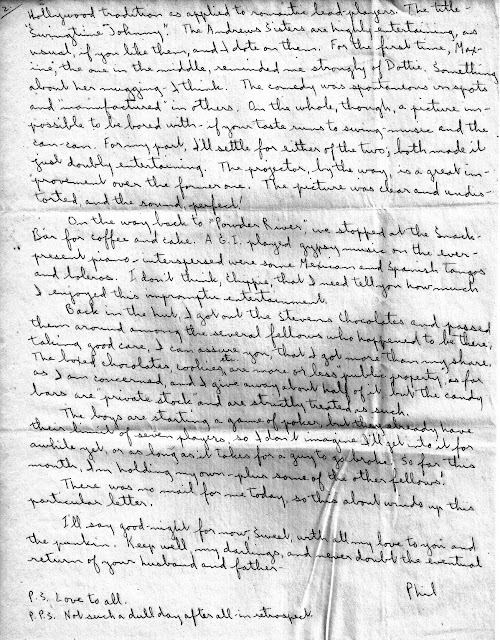 2/
Hollywood tradition as applied to romantic lead players. The title-
Swingtime Johnny. The Andrews Sisters are highly entertaining, as
usual, if you like them, and I dote on them. For the first time, Max-
ine, the one in the middle, reminded me strongly of Dottie. Something
about her mugging, I think. The comedy was spontaneous in spots
and "manufactured" in others. On the whole, though, a picture im-
possible to be bored with - if your taste runs to swing-music and the
can-can. For my part, I'll settle for either of the two; both made it
just doubly entertaining. The projector, by the way, is a great im-
provement over the former one. The picture was clear and undis-
torted, and the sound perfect!
On the way back to "Powder River", we stopped at the Snack-
Bar for coffee and cake. A G.I. played gypsy music on the ever-
present piano - interspersed were some Mexican and Spanish tangos
and boleros. I don't think, Chippie, that I need tell you how much
I enjoyed this impromptu entertainment.
Back in the hut, I got out the Stevens chocolates and passed
them around among the several fellows who happened to be there,
taking good care, I can assure you, that I got more than my share.
The boxed chocolates, cookies, etc. are more or less "public property", as far
as I am concerned, and I give away about half of it, but the candy
bars are private stock and are strictly treated as such.
The boys are starting a game of poker, but they already have
their limit of seven players, so I don't imagine I'll get into it for
awhile yet, or as long as it takes for a guy to go broke. So far this
month, I'm holding my own, plus some of the other fellows'.
There was no mail for me today, so this about winds up this
particular letter.
I'll say good-night for now, Sweet, with all my love to you and
the punkin. Keep well, my darlings, and never doubt the eventual
return of your husband and father-
Phil
P.S. Love to all.
P.P.S. Not such a dull day after all - in retrospect.